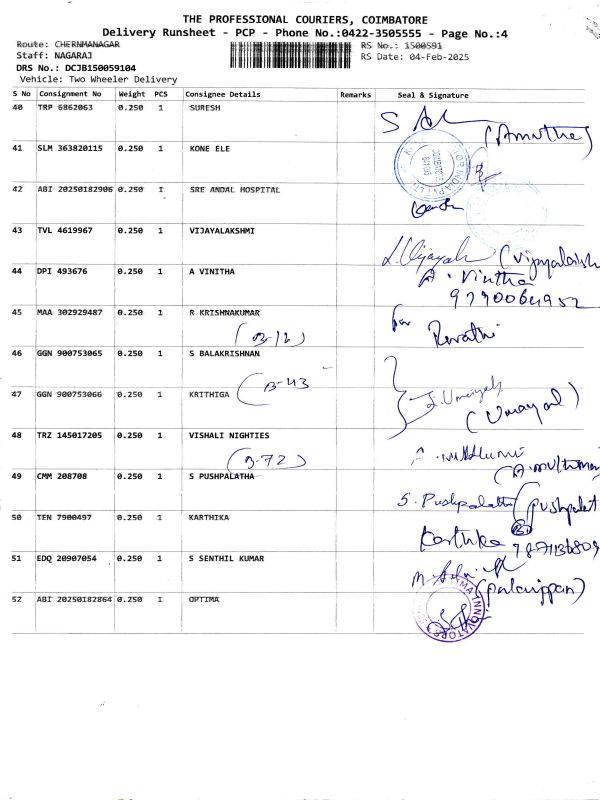 THE PROFESSIONAL COURIERS, COIMBATORE
Delivery Runsheet - PCP - Phone No.:0422-3505555 - Page No.:4
Route: CHERNMANAGAR
RS No.: 1500591
Staff: NAGARAJ
RS Date: 04-Feb-2025
DRS No.: DCJB150059104
Vehicle: Two Wheeler Delivery
S No Consignment No Weight PCS Consignee Details Remarks Seal & Signature
40 TRP 6862063 0.250 1 SURESH
(Amutha)
41 SLM 363820115 0.250 1 KONE ELE
42 ABI 20250182906 0.250 1 SRE ANDAL HOSPITAL
43 TVL 4619967 0.250 1 VIJAYALAKSHMI
44 DPI 493676 0.250 1 A VINITHA
A. Vinitha
9790064952
45 MAA 302929487 0.250 1 R KRISHNAKUMAR
for Revathi
(B-12)
46 GGN 900753065 0.250 1 S BALAKRISHNAN
B-43
47 GGN 900753066 0.250 1 KRITHIGA
(Umayal)
48 TRZ 145017205 0.250 1 VISHALI NIGHTIES
(B-72)
49 CMM 208708 0.250 1 S PUSHPALATHA
S. Pushpalatha
50 TEN 7900497 0.250 1 KARTHIKA
Karthika
51 EDQ 20907054 0.250 1 S SENTHIL KUMAR
(Palaniappan)
52 ABI 20250182864 0.250 1 OPTIMA